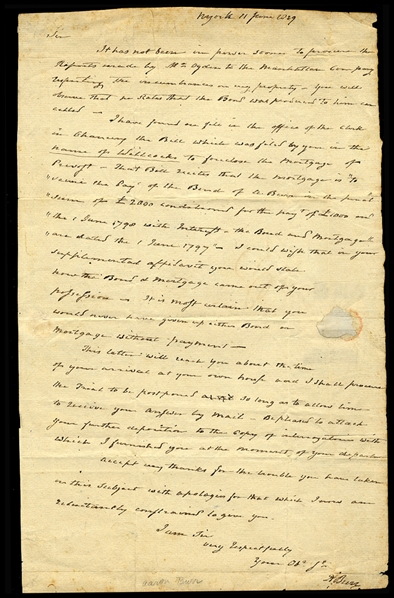 NYork 11 June 1829
Sir
It has not been in my power sooner to procure the
Reports made by Mr Ogden to the Manhattan Company
respecting the incumbrances on my property - You will
observe that he states that the Bond was produced to him can-
celled -
I have found on file in the office of the Clerk
in Chancery the Bill which was filed by you in the
name of Willcocks to foreclose the Mortgage of
Prevost - That Bill recites that the Mortgage is "to
"secure the Payt of the Bond of A. Burr in the penal
"Sum of £2000 conditioned for the payt of £1000 and
"the 1 June 1798 with Interest - the Bond and Mortgage
"are dated the 1 June 1797" - I could wish that in your
supplemental affidavit you would state
how the Bond & Mortgage came out of your
possession - It is most certain that you
would never have given up either Bond or
Mortgage without payment -
This letter will reach you about the time
of your arrival at your own house and I shall procure
the Trial to be postponed so long as to allow time
to receive your answer by Mail - Be pleased to attach
your further deposition to the Copy of interrogatories with
which I furnished you at the moment of your departure
Accept my thanks for the trouble you have taken
in this subject with apologies for that which I was
reluctantly constrained to give you.
I am Sir
very respectfully
Your Obt St
A. Burr
Aaron Burr